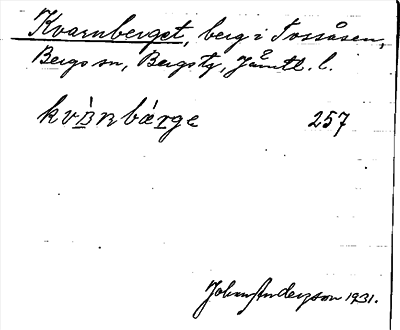 Kvarnberget, berg i Tossåsen,
Bergs sn, Bergs tg, Jämtl. l.
kvànbǽrge 257
Johan Anderzson 1931.